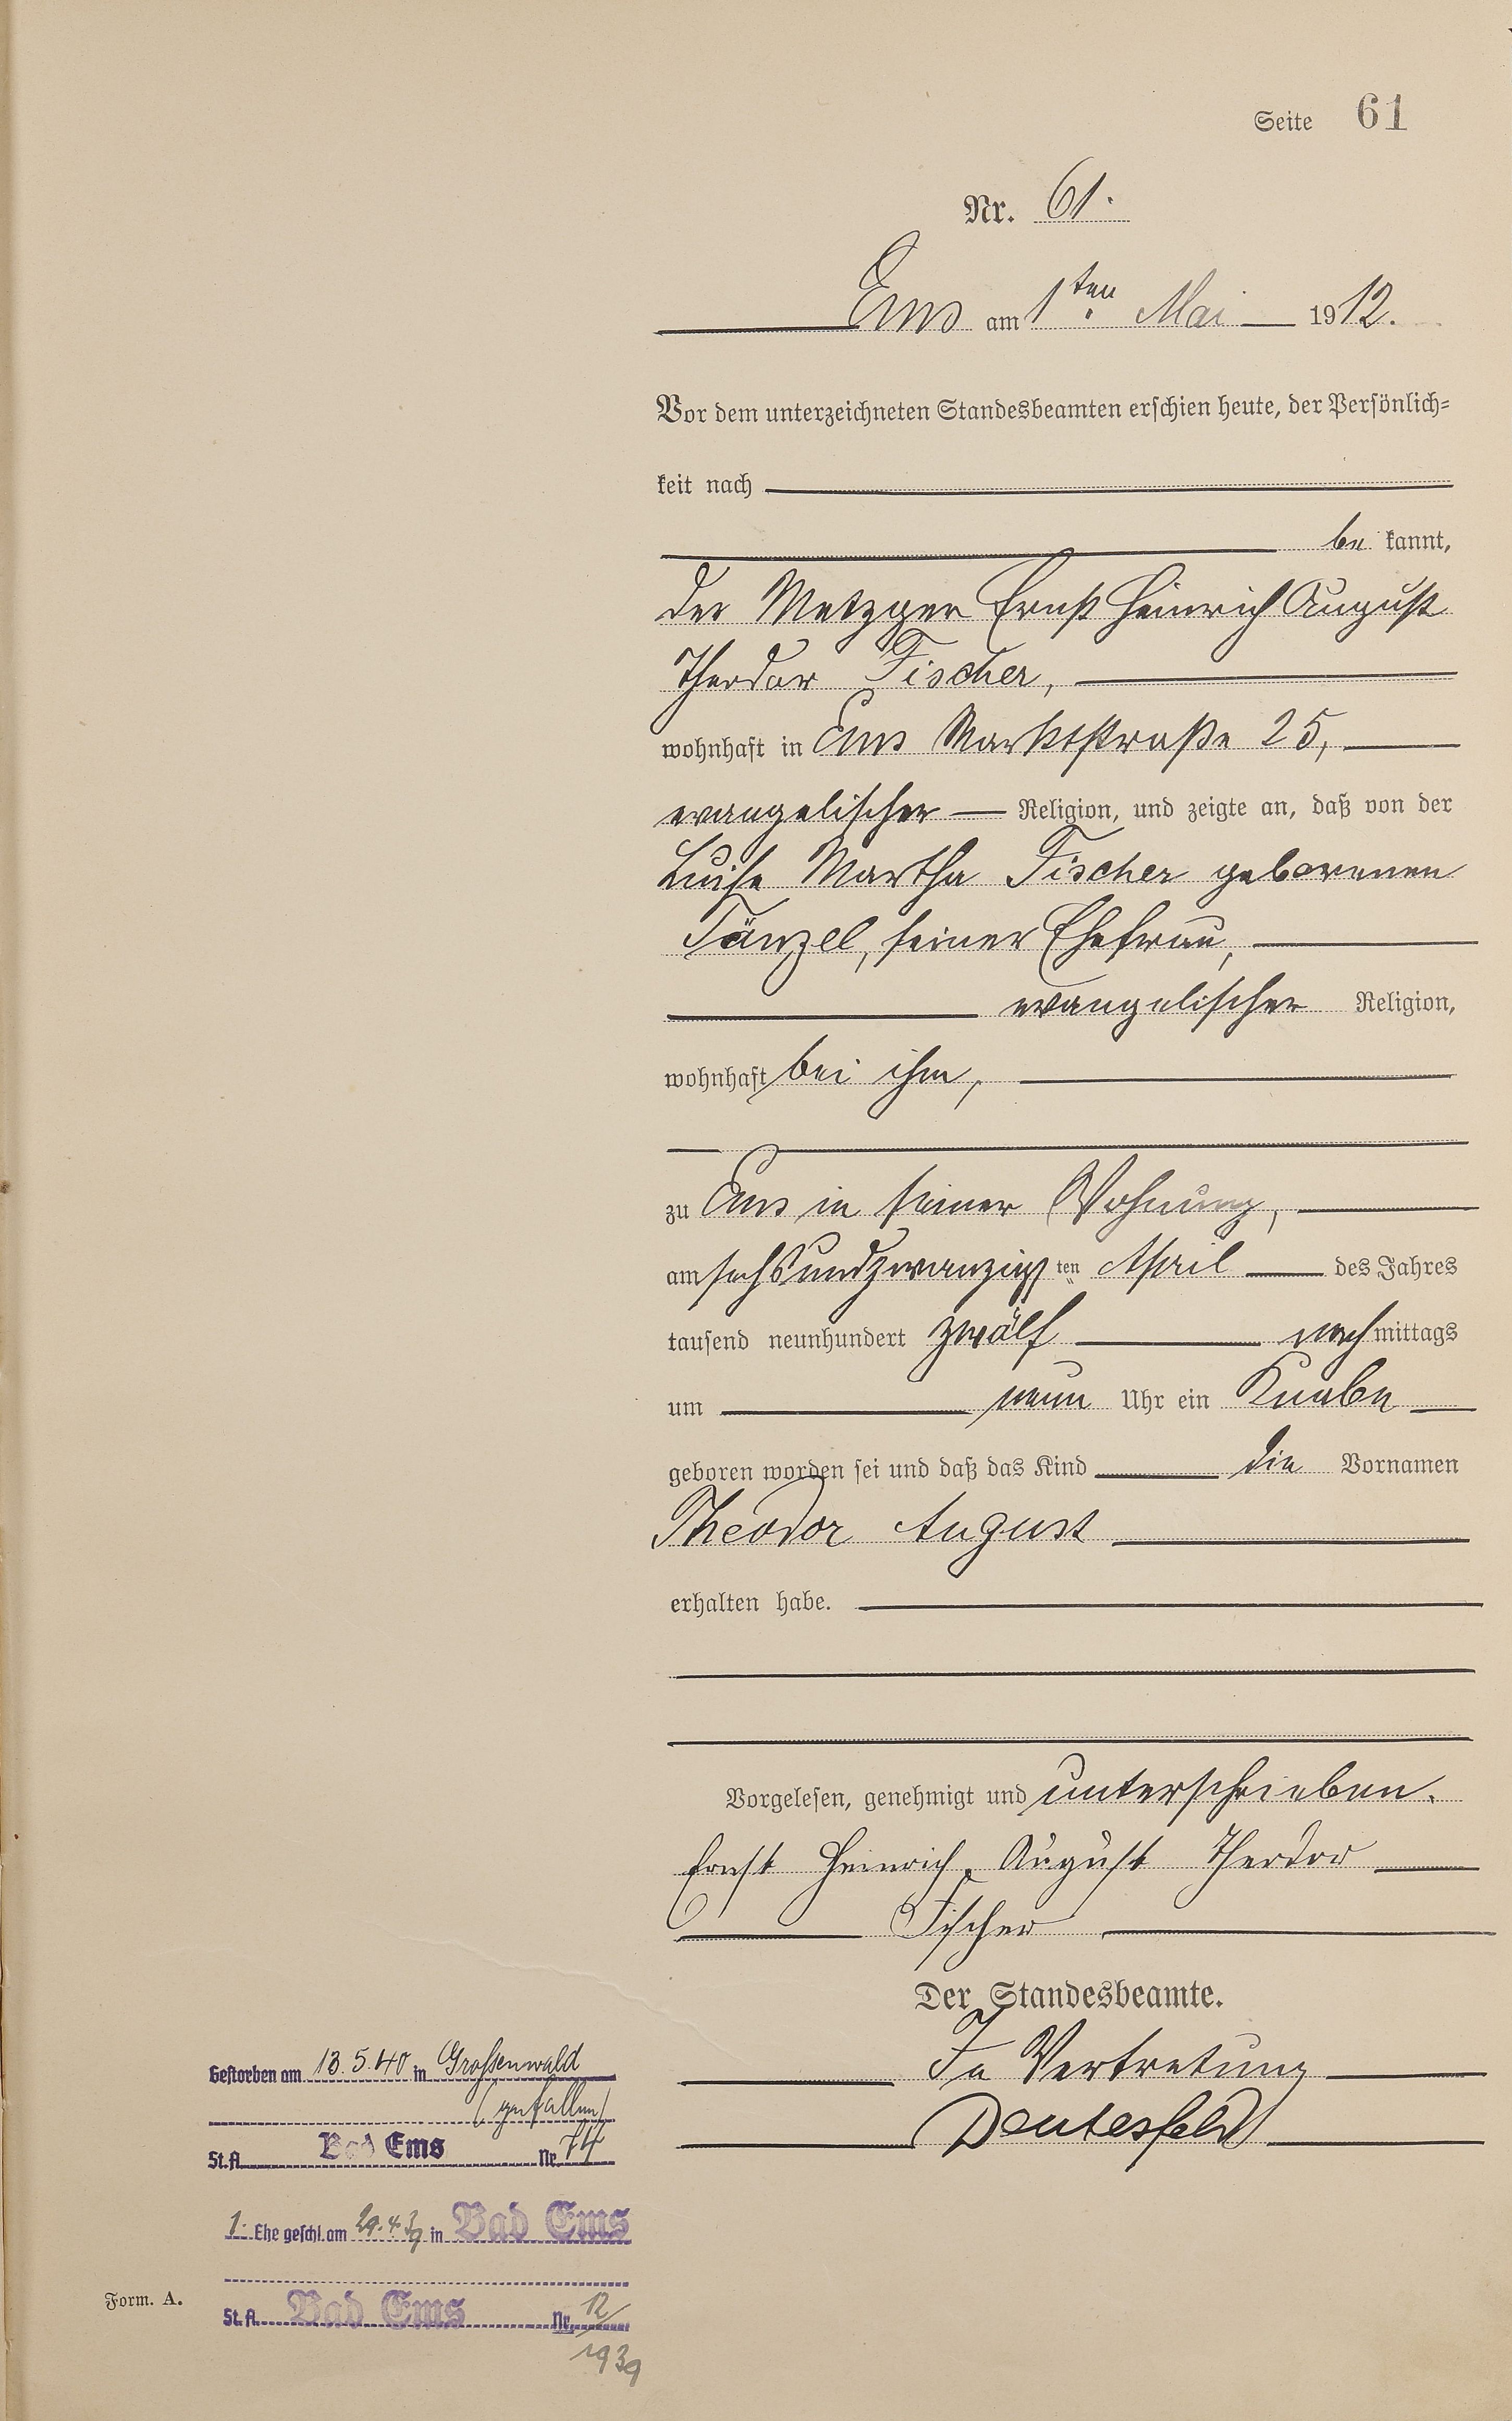 Seite 61
Nr. 61.
Ems am 1ten Mai 1912.
Vor dem unterzeichneten Standesbeamten erschien heute, der Persönlich-
keit nach
be kannt,
der Metzger Ernst Heinrich August
Theodor Fischer,
wohnhaft in Ems Marktstraße 25,
evangelischer Religion, und zeigte an, daß von der
Luise Martha Fischer geborenen
Tänzel, seiner Ehefrau,
evangelischer Religion,
wohnhaft bei ihm,
zu Ems in seiner Wohnung,
am sechsundzwanzigsten April des Jahres
tausend neunhundert zwölf nachmittags
um neun Uhr ein Knabe
geboren worden sei und daß das Kind die Vornamen
Theodor August
erhalten habe.
Vorgelesen, genehmigt und unterschrieben.
Ernst Heinrich August Theodor
Fischer
Der Standesbeamte.
In Vertretung
Deutesfeld
Gestorben am 13.5.40 in Grossenwald
(gefallen)
St.A. Bad Ems Nr. 74
1. Ehe geschl. am 29.4.39 in Bad Ems
St.A. Bad Ems Nr. 12/
1939
Form. A.